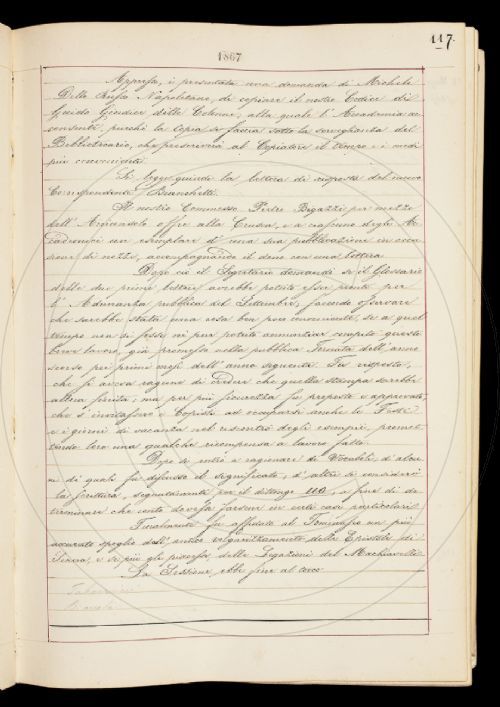 117.
1867
Appresso, è presentata una domanda di Michele
Dello Russo Napoletano, di copiare il nostro Codice di
Guido Giudice delle Colonne; alla quale l'Accademia ac-
consentì, purchè la copia si faccia sotto la sorveglianza del
Bibliotecario, che prescriverà al Copiatore il tempo e i modi
più convenienti.
Si legge quindi la lettera di risposta del nuovo
Corrispondente Bianchetti.
Il nostro Commesso Pietro Bigazzi per mezzo
dell' Arciconsolo offre alla Crusca, e a ciascuno degli Ac-
cademici un esemplare d'una sua pubblicazione in occa-
sione di nozze, accompagnando il dono con una lettera.
Dopo ciò il Segretario domanda se il Glossario
delle due prime lettere avrebbe potuto esser pronto per
l' Adunanza pubblica del Settembre, facendo osservare
che sarebbe stata una cosa ben poco conveniente, se a quel
tempo non si fosse nè pur potuto annunziar compito questo
breve lavoro, già promesso nella pubblica Tornata dell' anno
scorso pei primi mesi dell' anno seguente. Fu risposto,
che si aveva ragione di credere che quella stampa sarebbe
allora finita; ma per più sicurezza fu proposto e approvato,
che s' invitassero i Copisti ad occuparsi anche le Feste
e i giorni di vacanza nel riscontro degli esempi, promet-
tendo loro una qualche ricompensa a lavoro fatto.
Dopo si entrò a ragionare di Vocaboli, d' alcu-
ni di quali fu discusso il significato, d' altri si considerò
la scrittura, segnatamente per il dittongo uo, a fine di de-
terminare che conto dovesse farsene in certi casi particolari.
Finalmente fu affidato al Tommaseo un più
accurato spoglio dell' antico volgarizzamento delle Epistole di
Seneca, e di più gli piccoli, delle Legazioni del Machiavelli.
La Sessione ebbe fine al tocco.